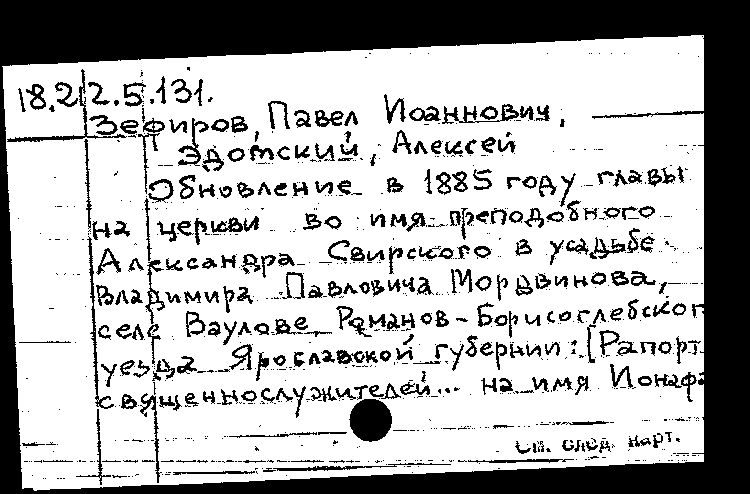 18.2 2.5.131.
Зефиров, Павел Иоаннович,
Эдотский, Алексей
Обновление в 1885 году главы
на церкви во имя преподобного
Александра Свирского в усадьбе
Владимира Павловича Мордвинова,
селе Ваулове, Романов-Борисоглебског
уезда Ярославской губернии: [Рапорт
священнослужителей... на имя Ионафа
См. след. карт.